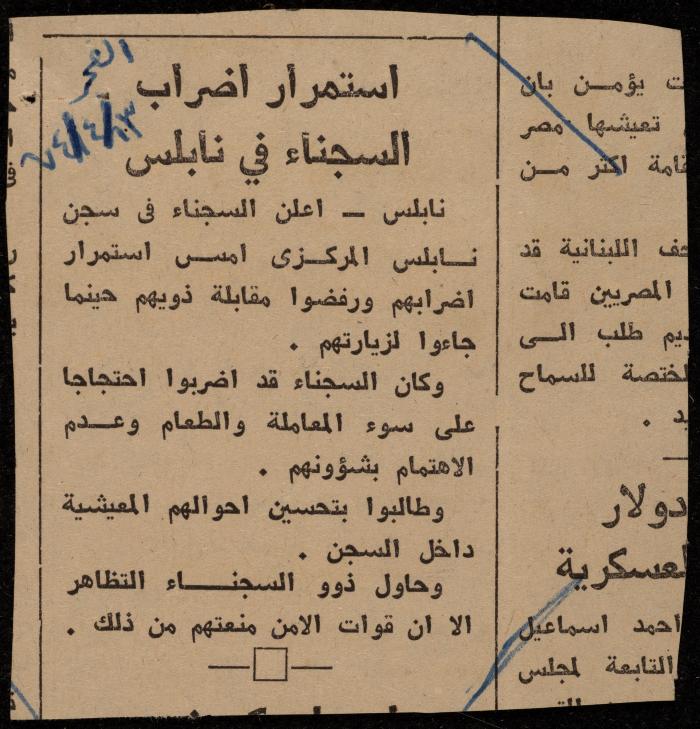 الفجر
٧٤/٤/٢٣
استمرار اضراب
السجناء في نابلس
نابلس ــ اعلن السجناء فى سجن
نـــابلس المركـزى امـس استمرار
اضرابهم ورفضوا مقابلة ذويهم حينما
جاءوا لزيارتهم .
وكان السجناء قد اضربوا احتجاجا
على سوء المعاملة والطعام وعـــدم
الاهتمام بشؤونهم .
وطالبوا بتحسين احوالهم المعيشية
داخل السجن .
وحاول ذوو السجنــــاء التظاهر
الا ان قوات الامن منعتهم من ذلك .
ت يؤمــن بان
تعيشها مصر
قامة اكثر مــن
حف اللبنانية قد
المصريين قامت
ديم طلب الــى
لختصة للسماح
يد .
دولار
لعسكرية
احمد اسماعيل
التابعة لمجلس